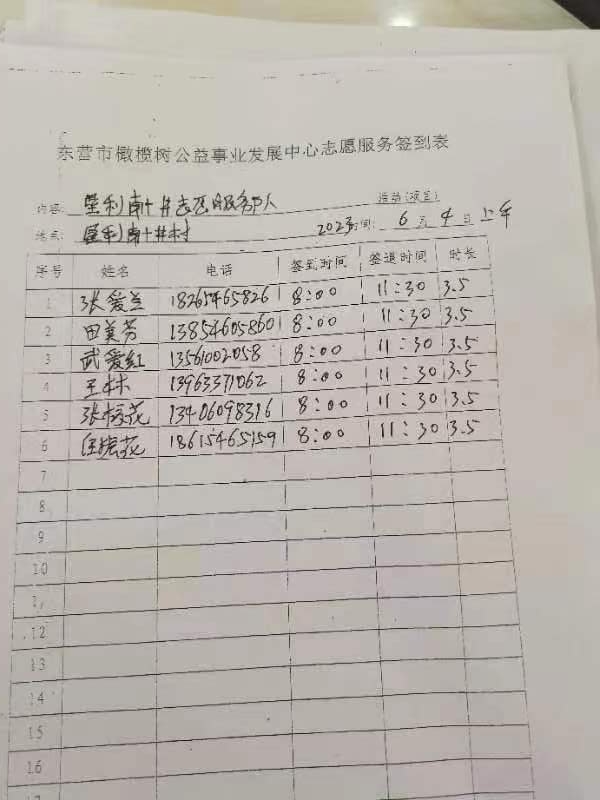 东营市橄榄树公益事业发展中心志愿服务签到表
活动(项目)
内容: 垦利南十井志愿服务
地点: 垦利南十井村 2023 时间: 6 月 4 日 上午
序号 姓名 电话 签到时间 签退时间 时长
1 张爱兰 18265465826 8:00 11:30 3.5
2 田美芳 13854605860 8:00 11:30 3.5
3 武爱红 13561002058 8:00 11:30 3.5
4 王林 13963371062 8:00 11:30 3.5
5 张核花 13406098316 8:00 11:30 3.5
6 花 18615465159 8:00 11:30 3.5
7
8
9
10
12
13
14
15
16
17